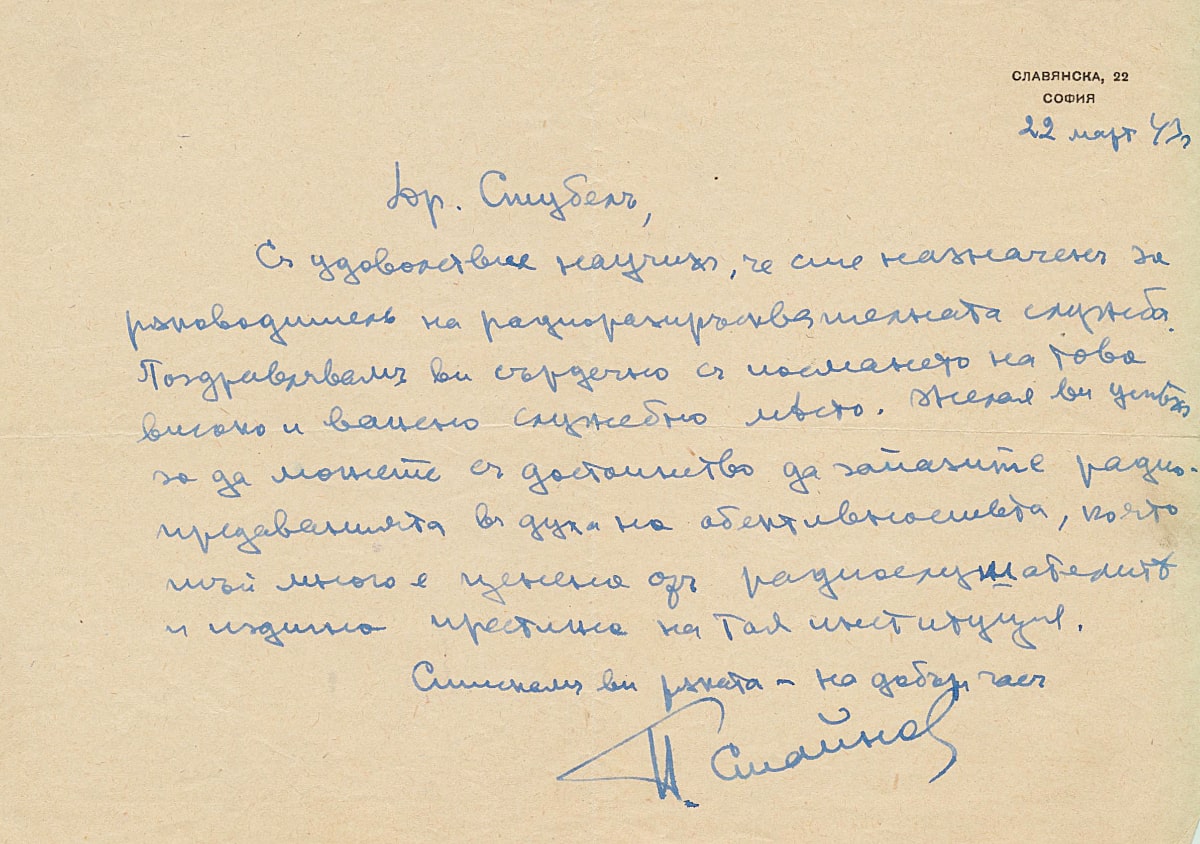 СЛАВЯНСКА, 22
СОФИЯ
22 март 43
Др. Стубелъ,
Съ удоволствие научихъ, че сте назначенъ за
рѫководитель на радиоразпръсквателната служба.
Поздравлявамъ ви сърдечно съ поемането на това
високо и важно служебно мѣсто. Желая ви успѣхъ
за да можете съ достоинство да запазите радио-
предаванията въ духа на обективностьта, която
тъй много е ценена отъ радиослушателитѣ
и издигна престижа на тая институция.
Стискамъ ви рѫката – на добъръ часъ
П. Стайнов